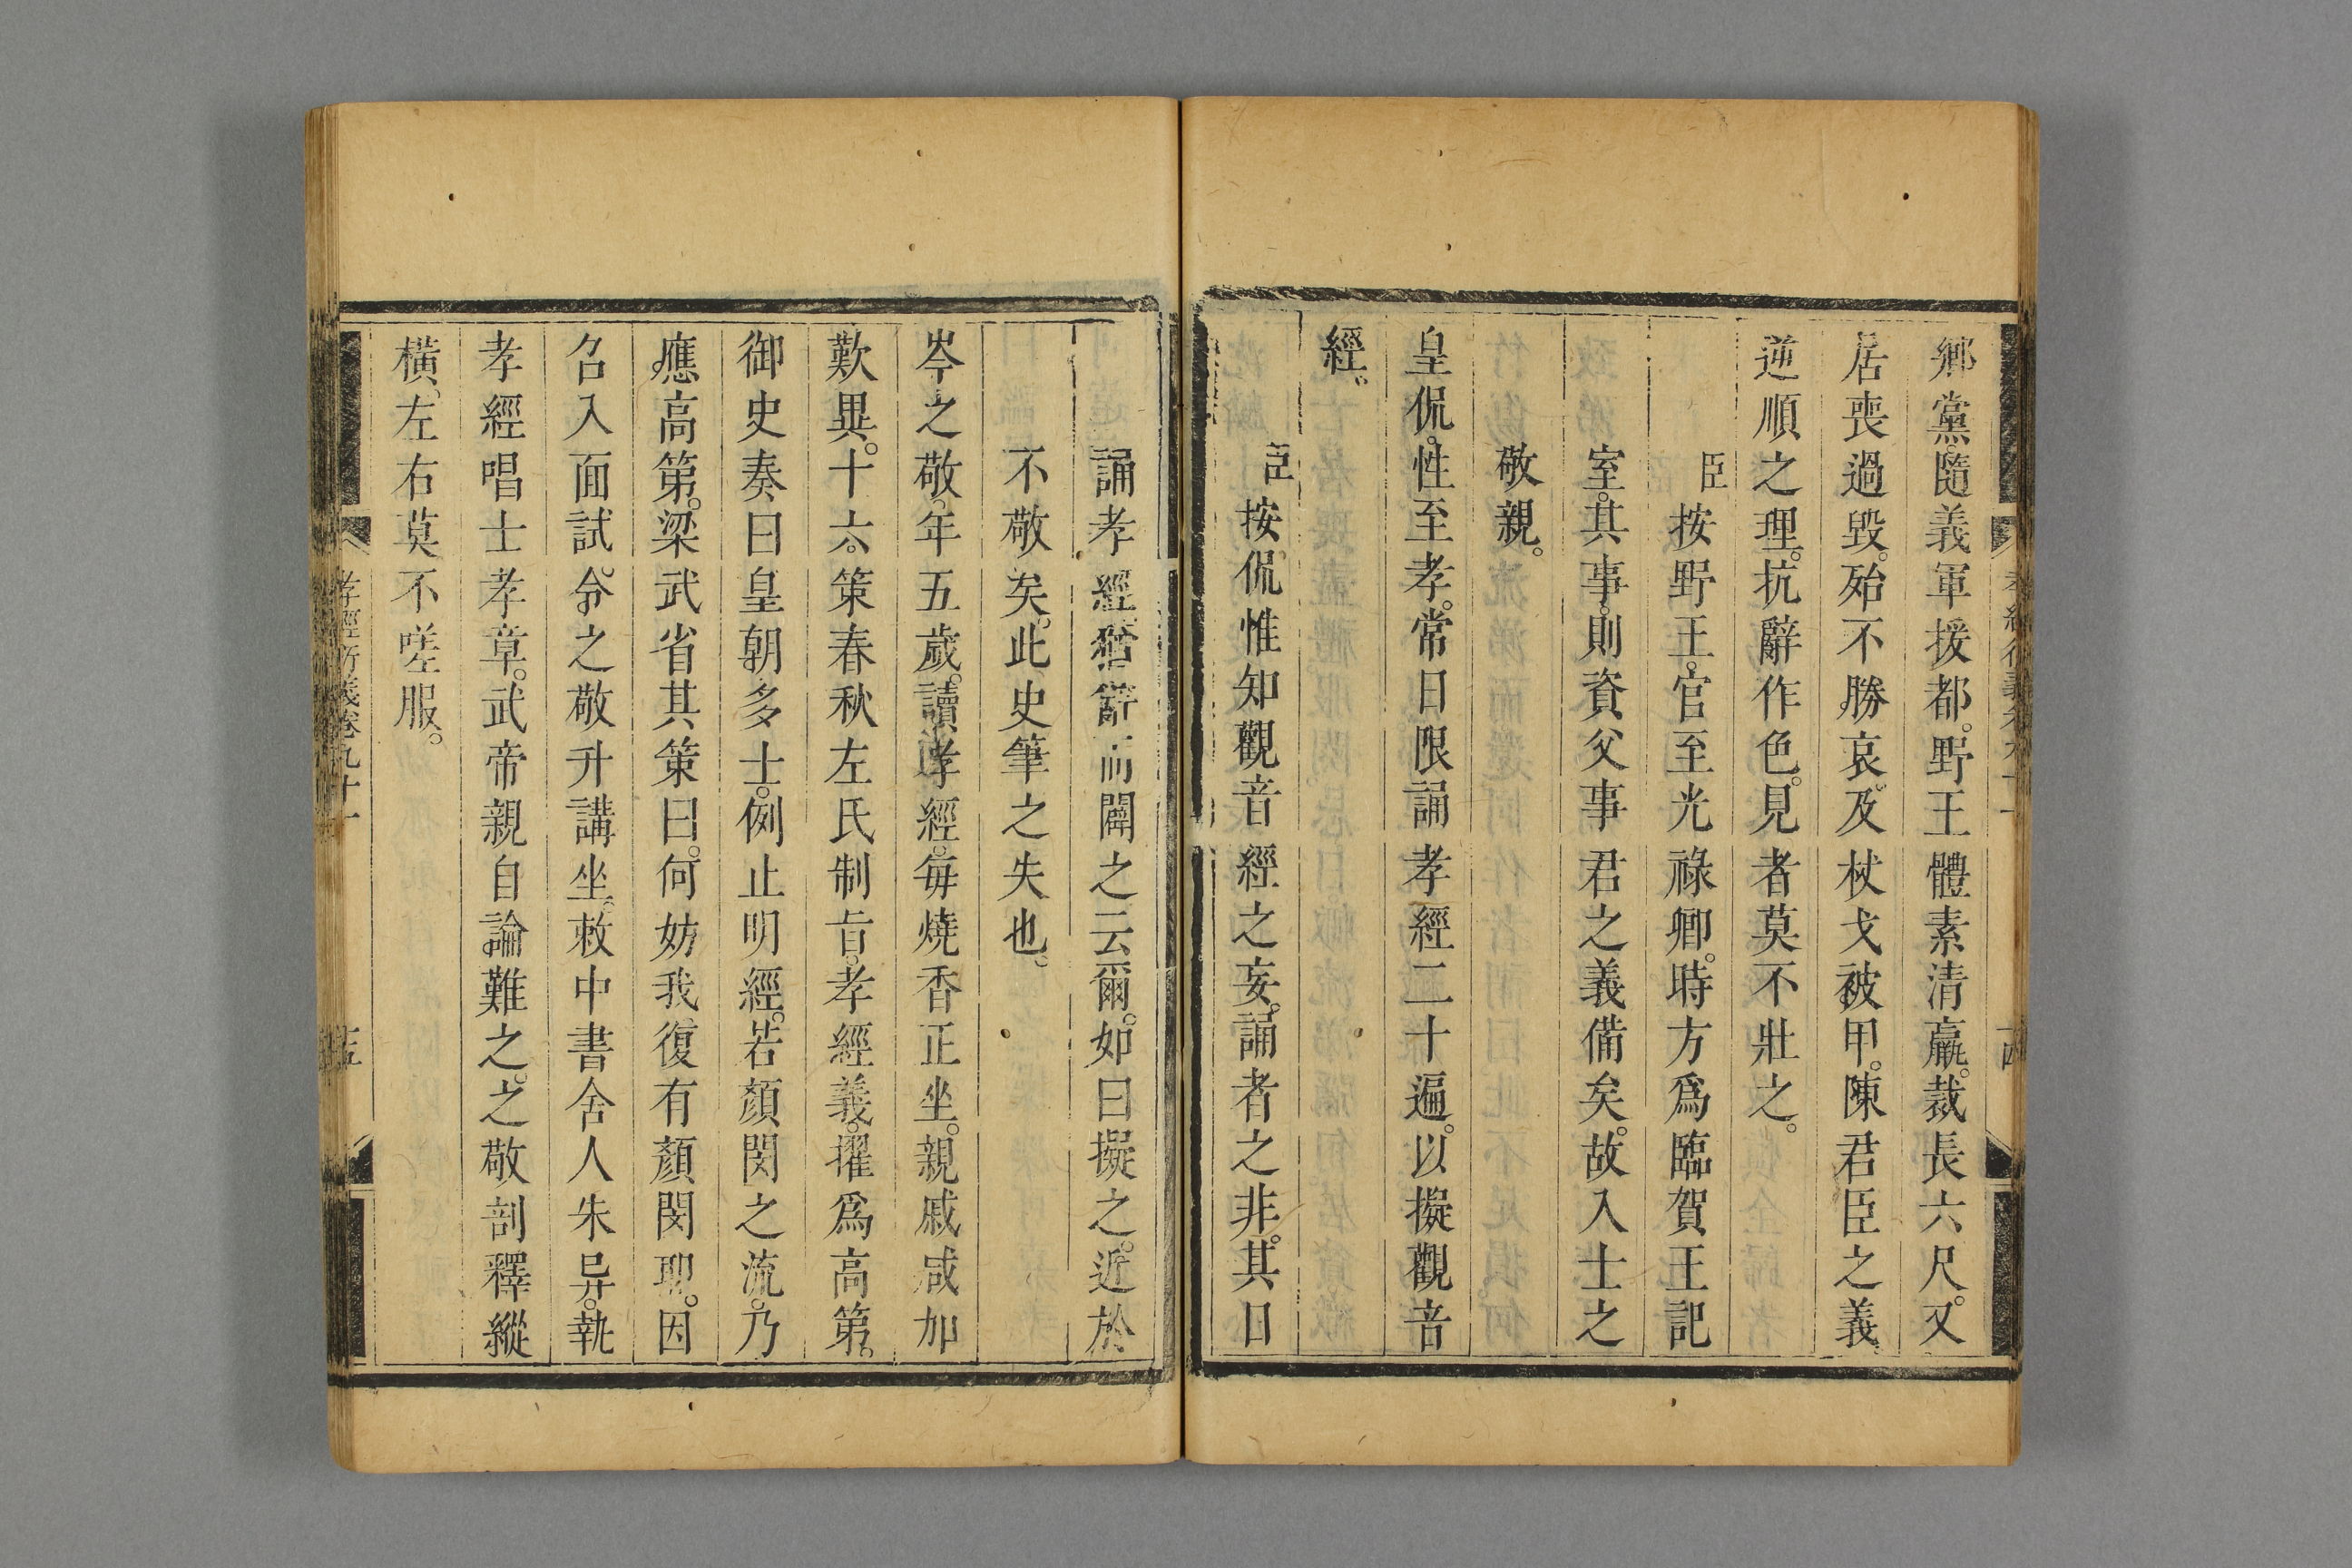 鄉黨。隨義軍援都。野王體素清羸。裁長六尺。又
居喪過毀。殆不勝哀。及杖戈被甲。陳君臣之義。
逆順之理。抗辭作色。見者莫不壯之。
臣按野王。官至光祿卿。時方爲臨賀王記
室。其事。則資父事君之義備矣。故入士之
敬親。
皇侃。性至孝。常日限誦孝經二十遍。以擬觀音
經。
臣按侃惟知觀音經之妄。誦者之非。其日
誦孝經而闢之云爾。如曰擬之。近於
不敬矣。此史筆之失也。
岑之敬。年五歲。讀孝經。每燒香正坐。親戚咸加
歎異。十六。策春秋左氏制旨。孝經義。擢爲高第。
御史奏曰皇朝多士。例止明經。若顏閔之流。乃
應高第。梁武省其策曰。何妨我復有顏閔耶。因
召入面試。令之敬升講坐。敕中書舍人朱异。執
孝經唱士孝章。武帝親自論難之。之敬剖釋縱
橫。左右莫不嗟服。
孝經衍義卷九十一